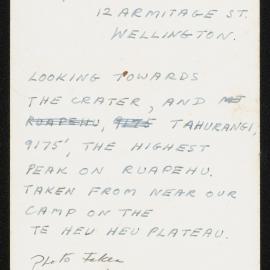 12 ARMITAGE ST.
WELLINGTON.
LOOKING TOWARDS
THE CRATER, AND MT
RUAPEHU, 9175 TAHURANGI,
9175', THE HIGHEST
PEAK ON RUAPEHU.
TAKEN FROM NEAR OUR
CAMP ON THE
TE HEU HEU PLATEAU.
Photo Taken